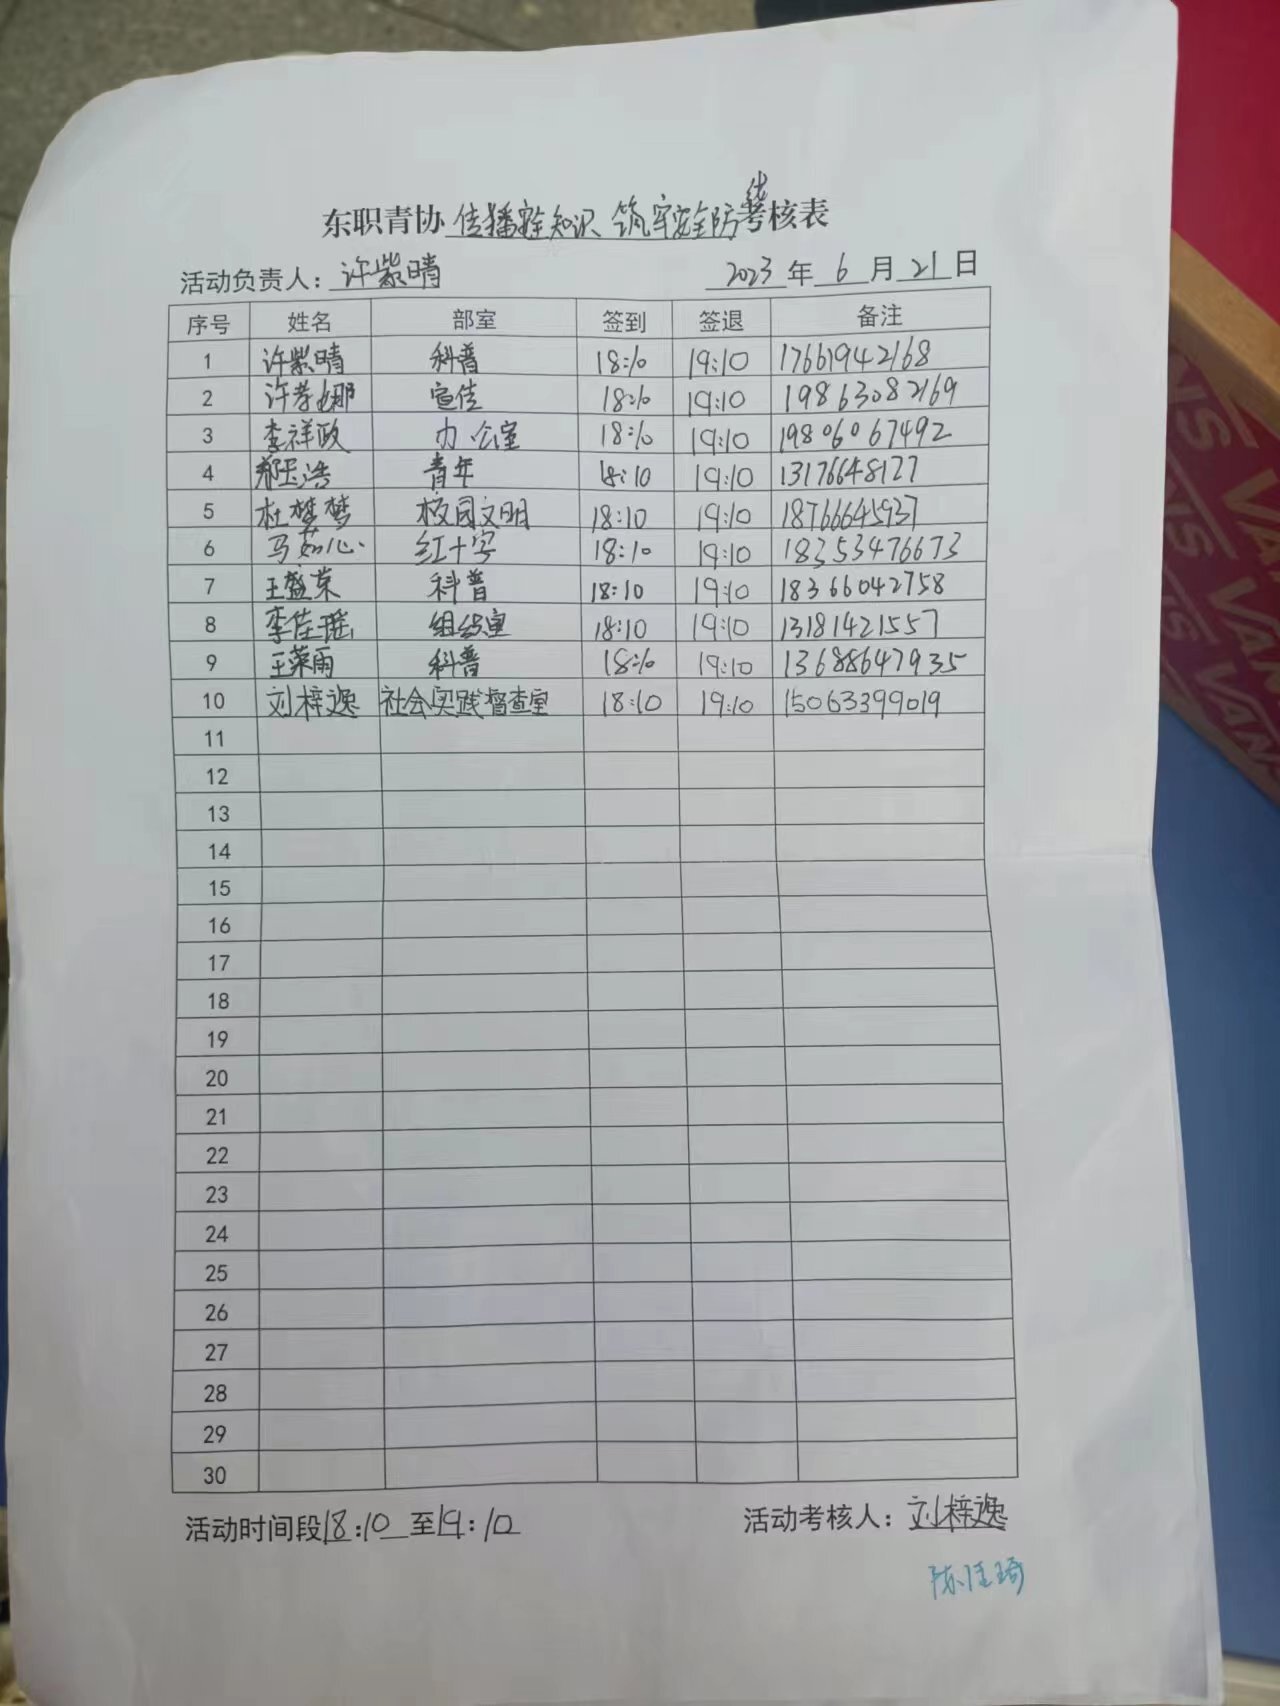 东职青协 传播安全知识 筑牢安全防线 考核表
活动负责人：许紫晴 2023 年 6 月 21 日
序号 姓名 部室 签到 签退 备注
1 许紫晴 科普 18:10 19:10 17661942168
2 许孝娜 宣传 18:10 19:10 19863082169
3 李祥政 办公室 18:10 19:10 19806067492
4 郑玉浩 青年 18:10 19:10 13176648127
5 杜梦梦 校园文明 18:10 19:10 18766645937
6 马茹心 红十字 18:10 19:10 18353476673
7 王盛荣 科普 18:10 19:10 18366042758
8 李佳瑶 组织室 18:10 19:10 13181421557
9 王荣雨 科普 18:10 19:10 13688647935
10 刘梓逸 社会实践督查室 18:10 19:10 15063399019
11
12
13
14
15
16
17
18
19
20
21
22
23
24
25
26
27
28
29
30
活动时间段18:10 至19:10 活动考核人：刘梓逸
陈佳琦
VANS
VANS
VAN